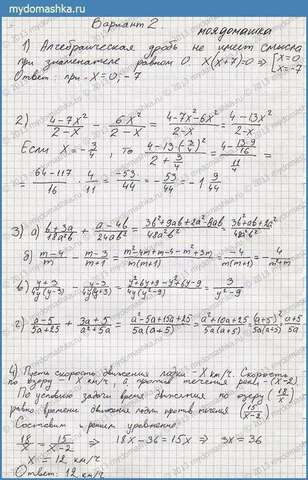 mydomashka.ru
Вариант 2. моядомашка
1) Алгебраическая дробь не имеет смысла
при знаменателе равном 0. X(X+7)=0 ⇒ [x=0, x=-7
Ответ: при X=0, -7
2) (4-7x²)/(2-x) - 6x²/(2-x) = (4-7x²-6x²)/(2-x) = (4-13x²)/(2-x)
Если x = -3/4, то (4-13·(-3/4)²)/(2+3/4) = (4-13·9/16)/(11/4) =
= (64-117)/16 · 4/11 = -53/44 = -53/44 = -1 9/44
3) а) (b+3a)/(18a²b) + (a-4b)/(24ab²) =
б) (m-4)/m - (m-3)/(m+1) = (m²-4m+m-4-m²+3m)/(m(m+1)) = -4/(m(m+1)) =
в) (y+3)/(4y(y-3)) - (y-3)/(4y(y+3)) = (y²+6y+9-y²+6y-9)/(4y(y²-9)) = 3/(y²-9)
г) (a-5)/(5a+25) + (3a+5)/(a²+5a) = (a²-5a+15a+25)/(5a(a+5)) = (a²+10a+25)/(5a(a+5)) = (a+5)²/(5a(a+5)) = (a+5)/5a
4) Пусть скорость движения лодки - X км/ч. Скорость
по озеру - X км/ч, а против течения реки - (x-2)
По условию задачи время движения по озеру (18/x)
равно времени движения лодки против течения (15/(x-2))
Составим и решим уравнение:
18/x = 15/(x-2) ⇒ 18x-36=15x ⇒ 3x=36
x = 12 км/ч
Ответ: 12 км/ч
mydomashka.ru